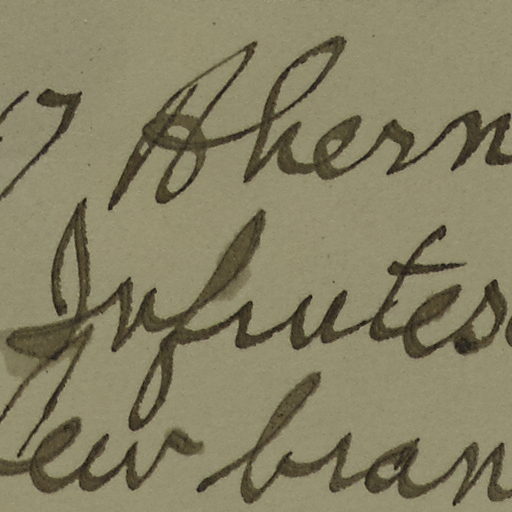 17 Ahern
Infrutes
New bran